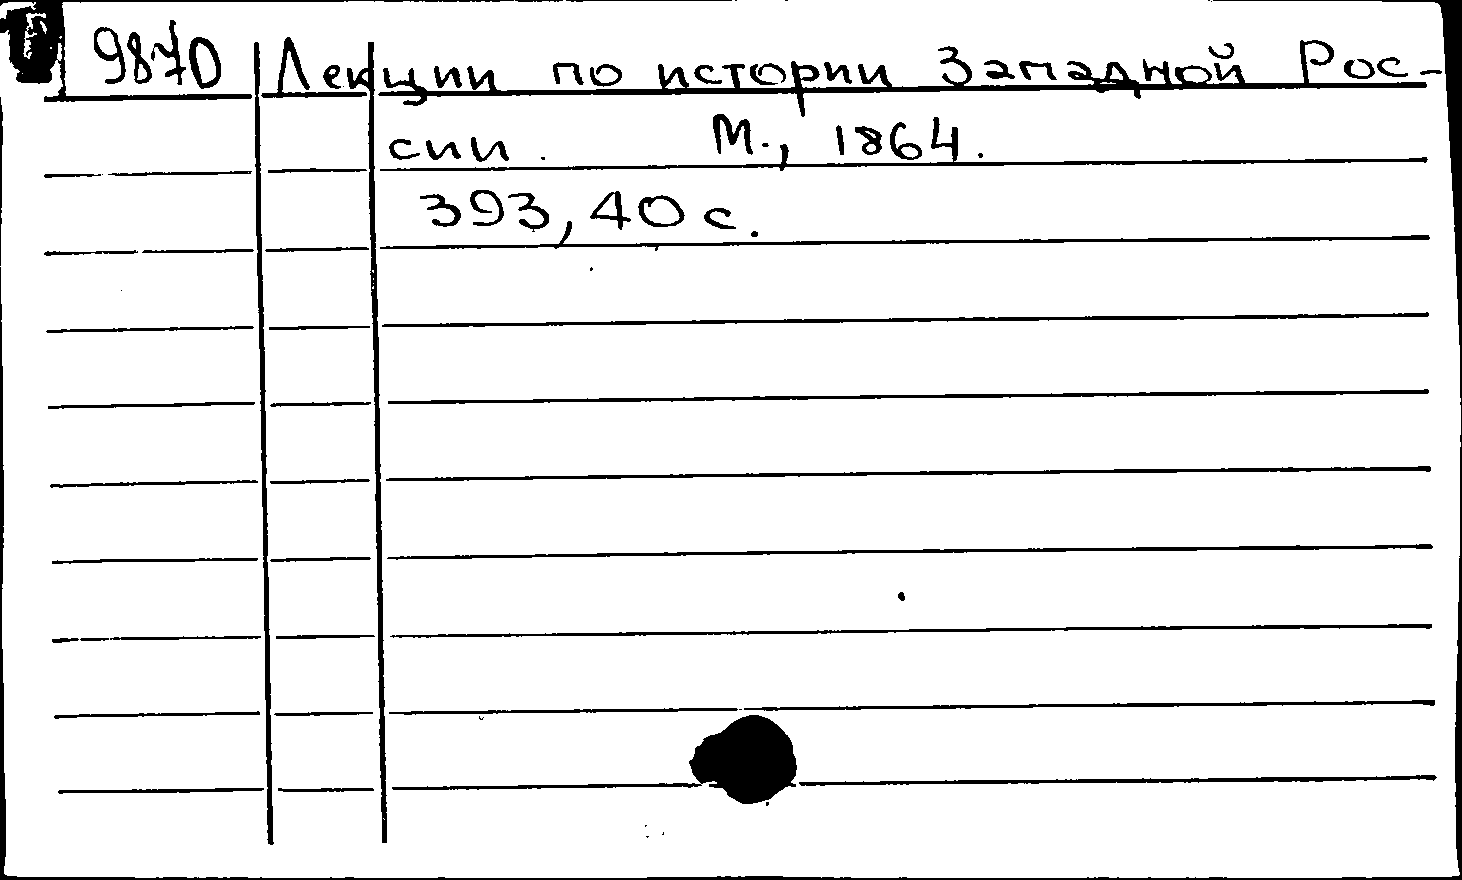 9870 Лекции по истории Западной Рос-
сии. М., 1864.
393, 40 с.